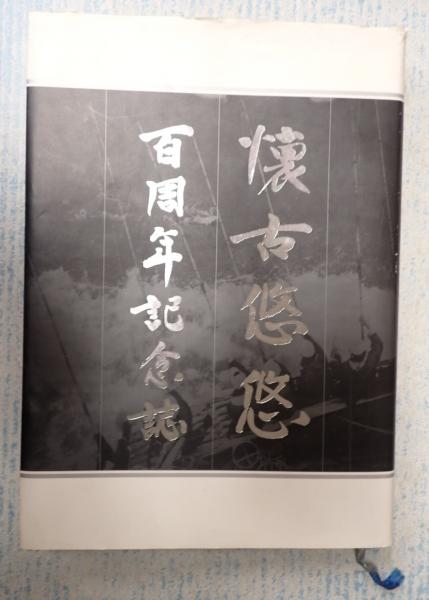 懐古悠悠
百周年記念誌